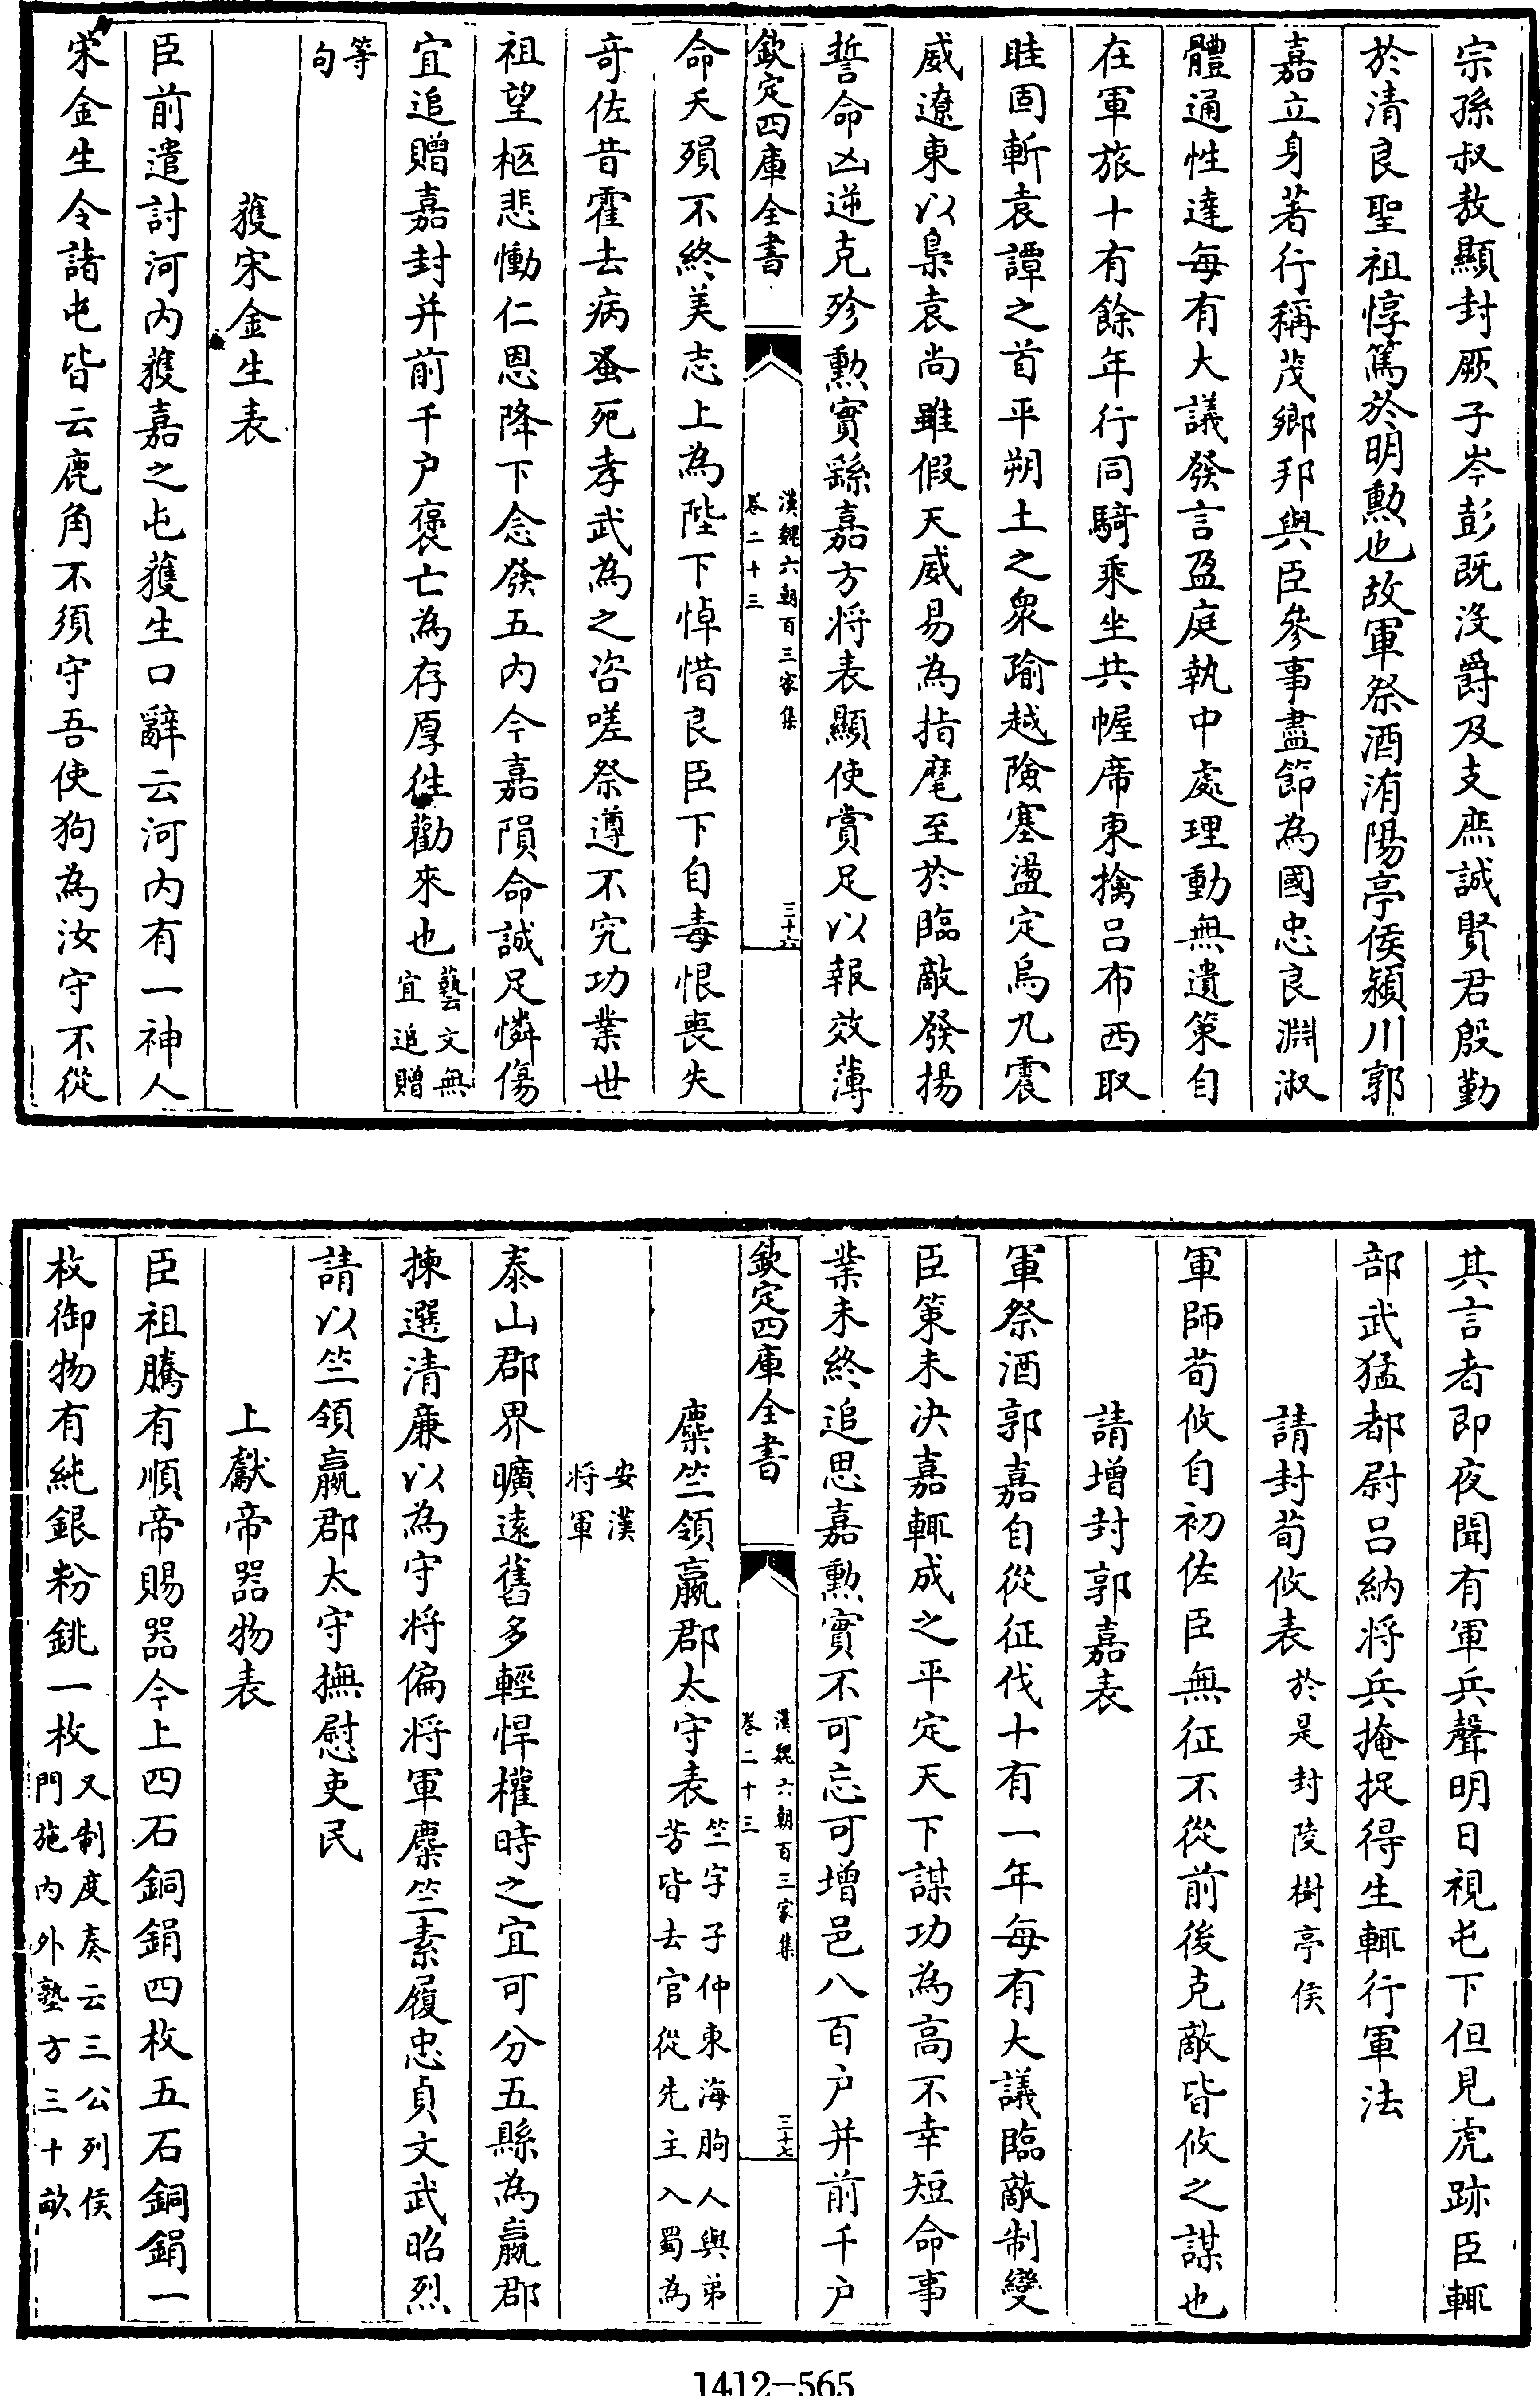 宗孫叔敖顯封厥子岑彭既沒爵及支庶誠賢君殷勤
於清良聖祖惇篤於明勲也故軍祭酒洧陽亭侯潁川郭
嘉立身著行稱茂鄉邦與臣參事盡節為國忠良淵淑
體通性達每有大議發言盈庭執中處理動無遺策自
在軍旅十有餘年行同騎乘坐共幄席東擒吕布西取
眭固斬袁譚之首平朔土之衆踰越險塞盪定烏丸震
威遼東以梟袁尚雖假天威易為指麾至於臨敵發揚
誓命凶逆克殄勲實繇嘉方將表顯使賞足以報效薄
欽定四庫全書
漢魏六朝百三家集
卷二十三
三十六
命夭殞不終美志上為陛下悼惜良臣下自毒恨喪失
奇佐昔霍去病蚤死孝武為之咨嗟祭遵不究功業世
祖望柩悲慟仁恩降下念發五内今嘉隕命誠足憐傷
宜追贈嘉封并前千户褒亡為存厚徃勸來也藝文無
宜追贈
等
句
獲宋金生表
臣前遣討河内獲嘉之屯獲生口辭云河内有一神人
宋金生令諸屯皆云鹿角不須守吾使狗為汝守不從
其言者即夜聞有軍兵聲明日視屯下但見虎跡臣輒
部武猛都尉吕納將兵掩捉得生輒行軍法
請封荀攸表於是封陵樹亭侯
軍師荀攸自初佐臣無征不從前後克敵皆攸之謀也
請增封郭嘉表
軍祭酒郭嘉自從征伐十有一年每有大議臨敵制變
臣策未決嘉輒成之平定天下謀功為高不幸短命事
業未終追思嘉勲實不可忘可增邑八百户并前千户
欽定四庫全書
漢魏六朝百三家集
卷二十三
三十七
麋竺領嬴郡太守表竺字子仲東海朐人與弟
芳皆去官從先主入蜀為
安漢
將軍
泰山郡界曠逺舊多輕悍權時之宜可分五縣為嬴郡
揀選清廉以為守將偏將軍麋竺素履忠貞文武昭烈
請以竺領嬴郡太守撫慰吏民
上獻帝器物表
臣祖騰有順帝賜器今上四石銅鋗四枚五石銅鋗一
枚御物有純銀粉銚一枚又制度奏云三公列侯
門施内外塾方三十畝
1412-565